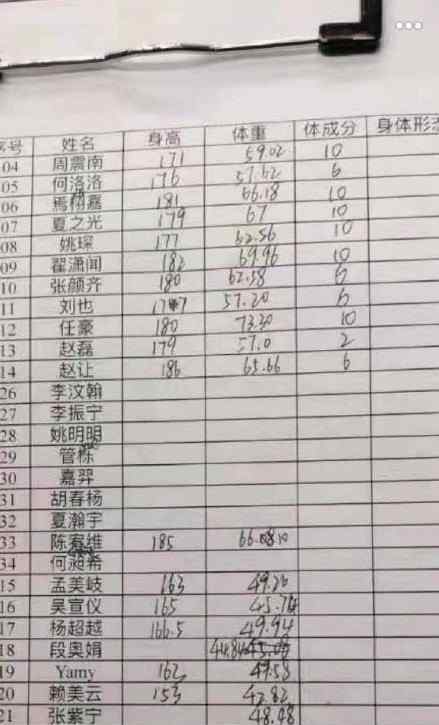 序号 姓名 身高 体重 体成分 身体形态
04 周震南 171 59.02 10
05 何洛洛 176 57.62 6
06 焉栩嘉 181 66.18 10
07 夏之光 179 67 10
08 姚琛 177 62.56 10
09 翟潇闻 182 69.96 10
10 张颜齐 180 62.58 6
11 刘也 57.20 6
12 任豪 180 73.30 10
13 赵磊 179 57.0 2
14 赵让 186 65.66 6
26 李汶翰
27 李振宁
28 姚明明
29 管栎
30 嘉羿
31 胡春杨
32 夏瀚宇
33 陈宥维 185
34 何昶希
15 孟美岐 163 49.26
16 吴宣仪 165
17 杨超越 166.5 49.94
18 段奥娟
19 Yamy 162 49.58
20 赖美云 153 42.82
21 张紫宁 48.08